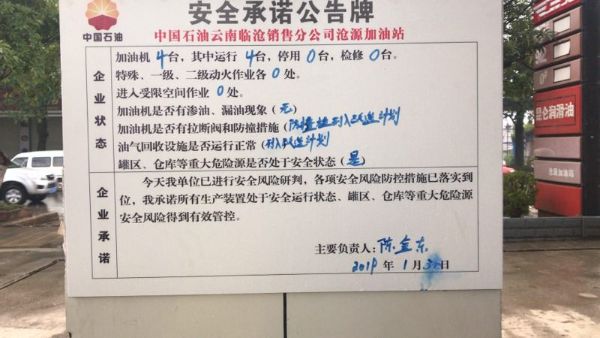 中国石油
安全承诺公告牌
中国石油云南临沧销售分公司沧源加油站
企业状态
加油机 4 台，其中运行 4 台，停用 0 台，检修 0 台。
特殊、一级、二级动火作业各 0 处。
进入受限空间作业 0 处。
加油机是否有渗油、漏油现象（无）
加油机是否有拉断阀和防撞措施（防撞柱列入改造计划
油气回收设施是否运行正常（列入改造计划
罐区、仓库等重大危险源是否处于安全状态（是）
企业承诺
今天我单位已进行安全风险研判，各项安全风险防控措施已落实到
位，我承诺所有生产装置处于安全运行状态、罐区、仓库等重大危险源
安全风险得到有效管控。
主要负责人：陈金东
2019 年 1 月 日
昆仑润滑油